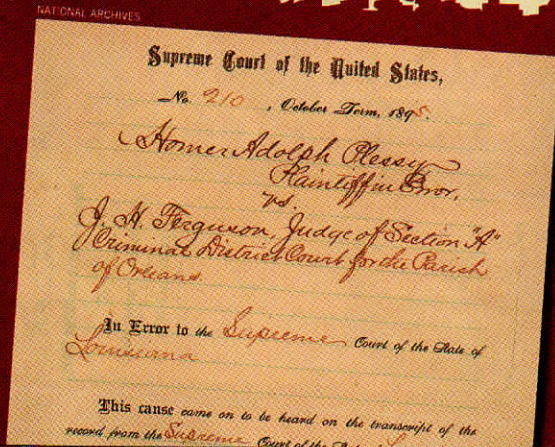 NATIONAL ARCHIVES
Supreme Court of the United States,
No. 210, October Term, 1895.
Homer Adolph Plessy
Plaintiff in Error,
vs.
J. H. Ferguson, Judge of Section "A"
Criminal District Court for the Parish
of Orleans.
In Error to the Supreme Court of the State of
Louisiana
This cause came on to be heard on the transcript of the
record from the Supreme Court of the